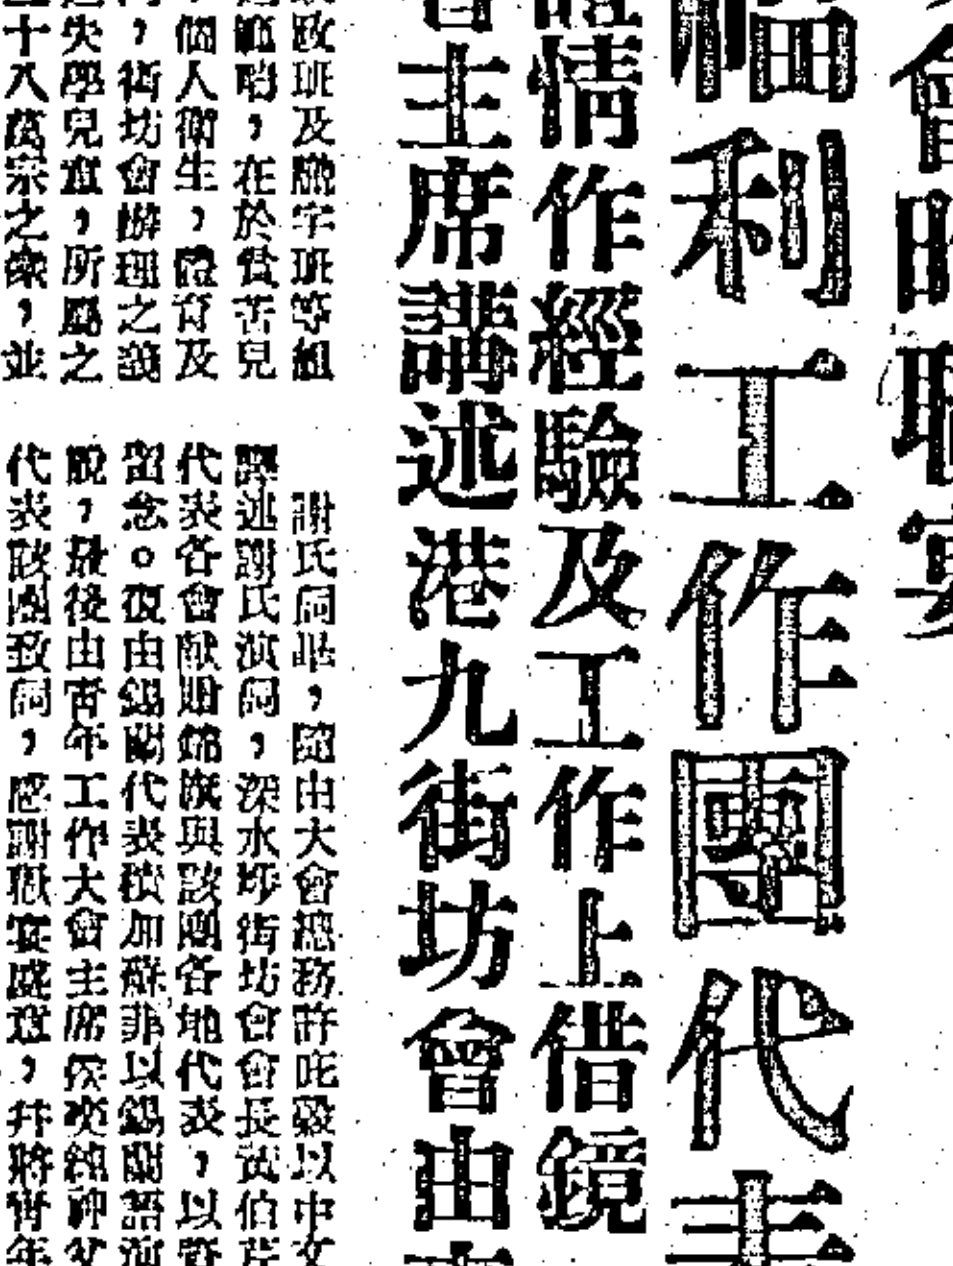 福利工作團代表
情作經驗及工作上借鏡
會主席講述港九街坊會由
政班及識字班等組
範疇，在於貧苦兒
個人衛生，體育及
，街坊會辦理之義
失學兒童，所屬之
十八萬宗之衆，並
謝氏詞畢，隨由大會總務許庇穀以中文
譯述謝氏演詞，深水埗街坊會會長黃伯芹
代表各會獻贈錦旗與該團各地代表，以資
留念。復由錫蘭代表積加蘇菲以錫蘭語演
說，最後由青年工作大會主席侯奕純神父
代表該團致詞，感謝歡宴盛意，幷將青年